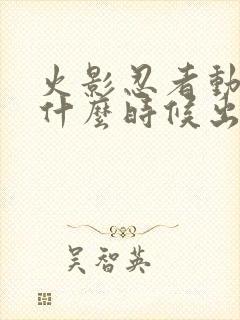 火影忍者動
什麼時候出
吳智英